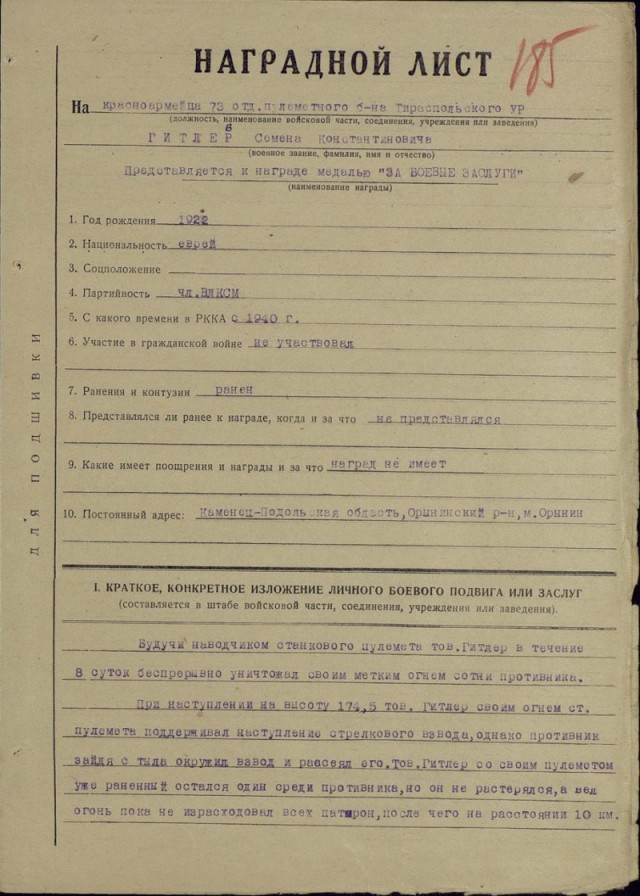 НАГРАДНОЙ ЛИСТ
185
На красноармейца 73 отд.пулеметного б-на Тираспольского УР
(должность, наименование войсковой части, соединения, учреждения или заведения)
в
ГИТЛЕР Семена Константиновича
(военное звание, фамилия, имя и отчество)
Представляется к награде медалью "ЗА БОЕВЫЕ ЗАСЛУГИ"
(наименование награды)
1. Год рождения 1922
2. Национальность еврей
3. Соцположение
4. Партийность чл.ВЛКСМ
5. С какого времени в РККА с 1940 г.
6. Участие в гражданской войне не участвовал
7. Ранения и контузии ранен
8. Представлялся ли ранее к награде, когда и за что не представлялся
9. Какие имеет поощрения и награды и за что наград не имеет
10. Постоянный адрес: Каменец-Подольская область,Орынинский р-н,м.Орынин
I. КРАТКОЕ, КОНКРЕТНОЕ ИЗЛОЖЕНИЕ ЛИЧНОГО БОЕВОГО ПОДВИГА ИЛИ ЗАСЛУГ
(составляется в штабе войсковой части, соединения, учреждения или заведения).
Будучи наводчиком станкового пулемета тов.Гитлер в течение
8 суток беспрерывно уничтожал своим метким огнем сотни противника.
При наступлении на высоту 174,5 тов. Гитлер своим огнем ст.
пулемета поддерживал наступление стрелкового взвода,однако противник
зайдя с тыла окружил взвод и рассеял его.Тов.Гитлер со своим пулеметом
уже раненный остался один среди противника,но он не растерялся,а вел
огонь пока не израсходовал всех патрон,после чего на расстоянии 10 км.
ДЛЯ ПОДШИВКИ